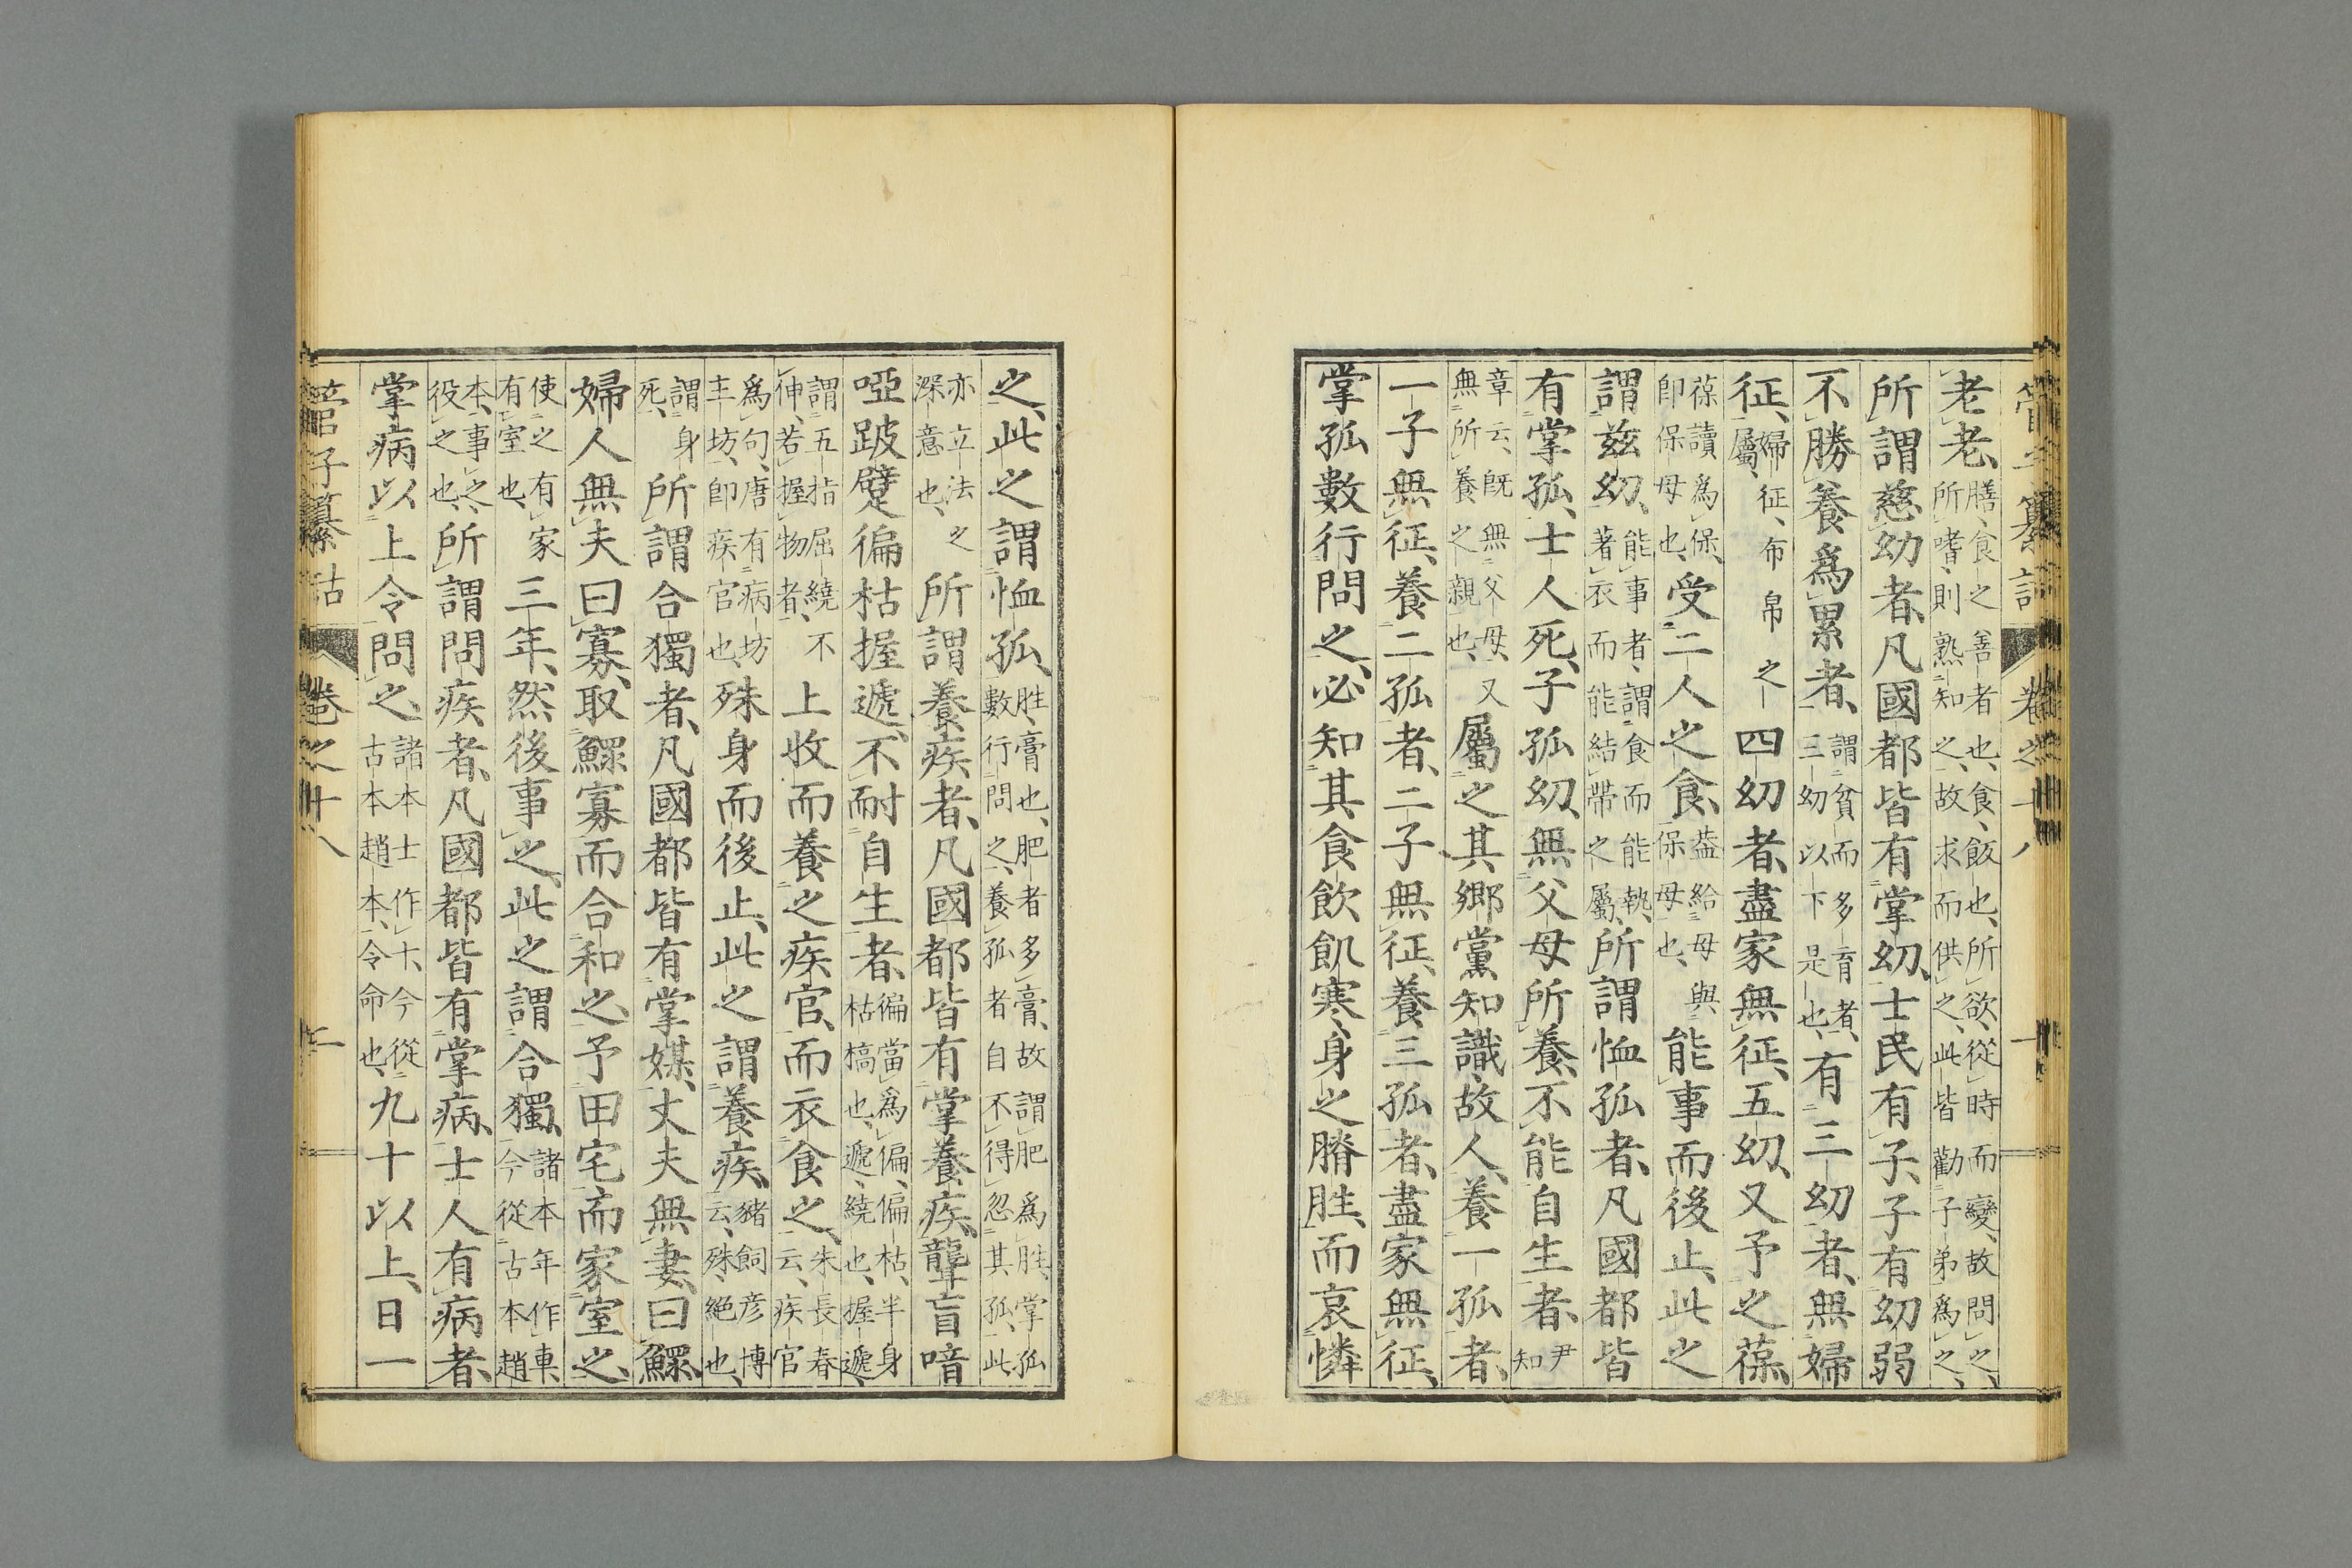 管子纂詁 卷之十八 一
老老、膳、食之善者也、食、飯也、所欲、從時而變、故問之、所嗜、則熟知之、故求而供之、此皆勸子弟爲之、
所謂慈幼者、凡國都皆有掌幼、士民有子、子有幼弱
不勝養爲累者、謂貧而多育者、三幼以下是也、有三幼者、無婦
征、婦征、布帛之屬、四幼者、盡家無征、五幼、又予之葆、
葆讀爲保、卽保母也、受二人之食、蓋給母與保母也、能事而後止、此之
謂茲幼、能事者、謂食而能執、著衣而能結帶之屬、所謂恤孤者、凡國都皆
有掌孤、士人死、子孤幼、無父母所養、不能自生者、尹知
章云、旣無父母、又無所養之親也、屬之其鄉黨知識故人、養一孤者、
一子無征、養二孤者、二子無征、養三孤者、盡家無征、
掌孤數行問之、必知其食飲飢寒、身之膌胜、而哀憐
之、此之謂恤孤、胜、膏也、肥者多膏、故謂肥爲胜、掌孤數行問之、養孤者自不得忽其孤、此
亦立法之深意也、所謂養疾者、凡國都皆有掌養疾、聾盲喑
啞跛躄徧枯握遞、不耐自生者、徧當爲偏、偏枯、半身枯槁也、遞、繞也、握遞、
謂五指屈繞不伸、若握物者、上收而養之疾官、而衣食之、朱長春云、疾官
爲句、唐有病坊主坊、卽疾官也、殊身而後止、此之謂養疾、豬飼彦博云、殊、絕也、
謂身死、所謂合獨者、凡國都皆有掌媒、丈夫無妻、曰鰥、
婦人無夫、曰寡、取鰥寡而合和之、予田宅、而家室之、
使之有家有室也、三年、然後事之、此之謂合獨、諸本年作車、今從古本趙
本、事之、役之也、所謂問疾者、凡國都皆有掌病、士人有病者、
掌病以上令問之、諸本士作十、今從古本趙本、令命也、九十以上、日一
管子纂詁 卷之十八 二